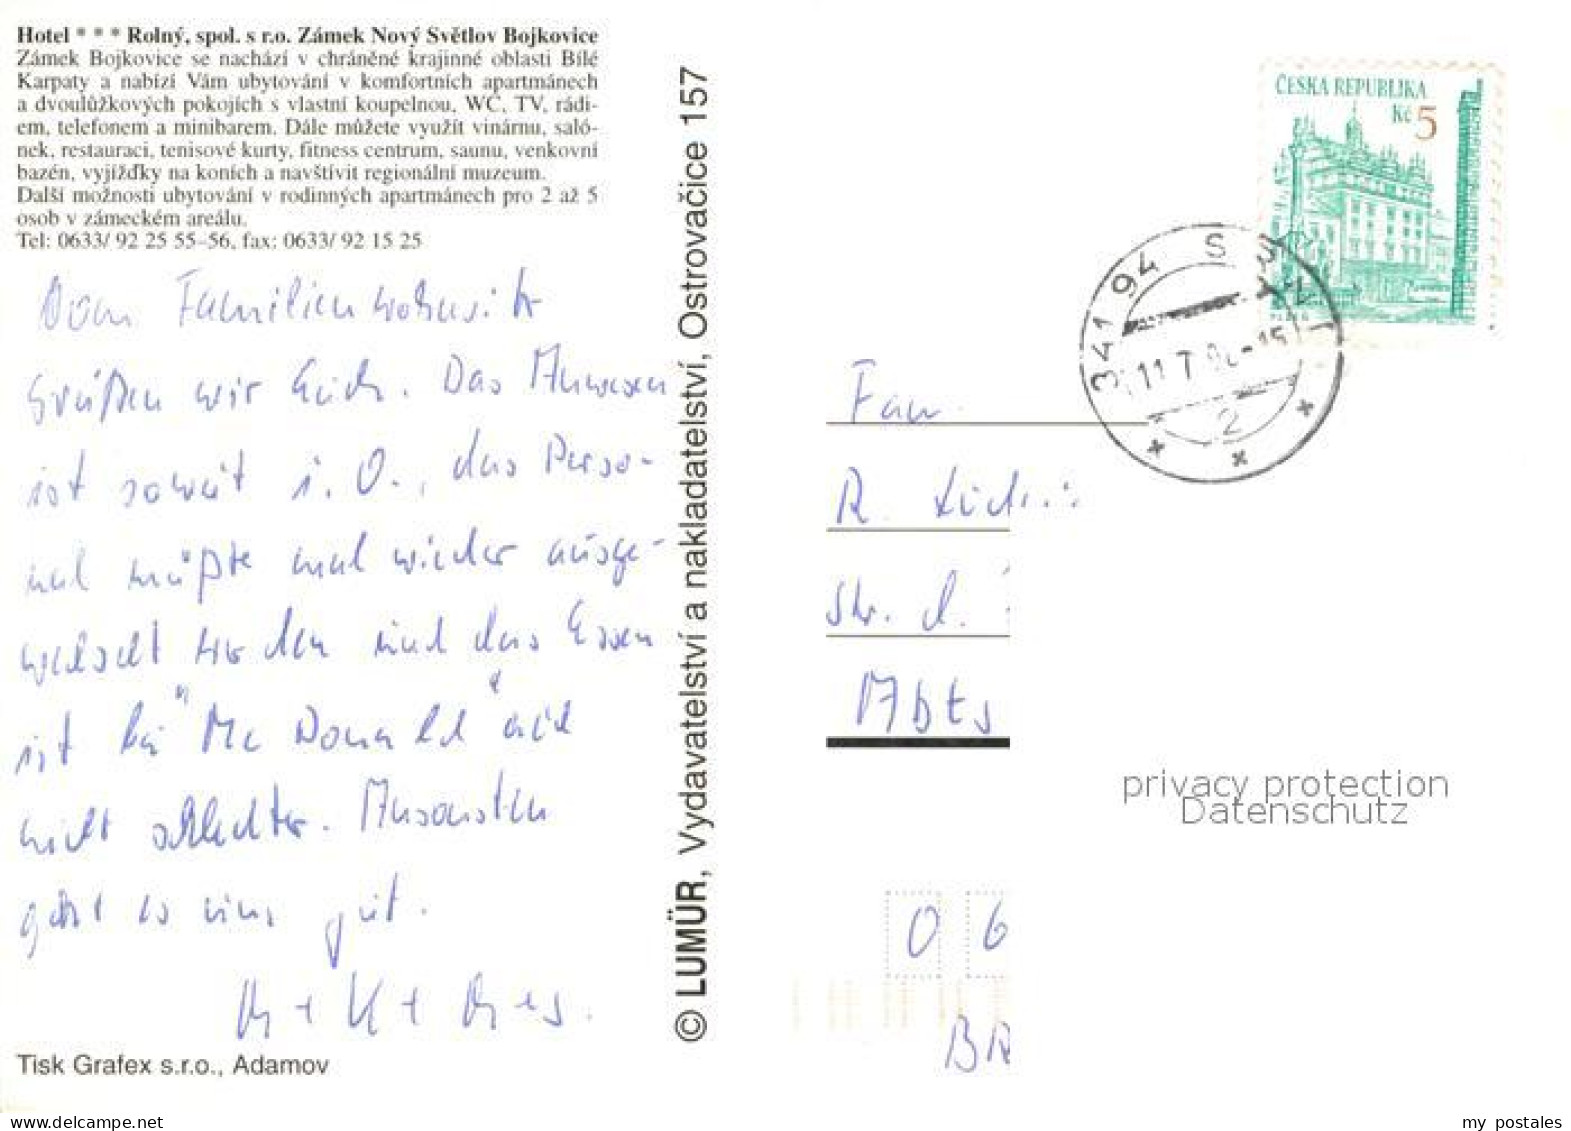 Hotel * * * Rolný, spol. s r.o. Zámek Nový Světlov Bojkovice
Zámek Bojkovice se nachází v chráněné krajinné oblasti Bílé
Karpaty a nabízí Vám ubytování v komfortních apartmánech
a dvoulůžkových pokojích s vlastní koupelnou, WC, TV, rádi-
em, telefonem a minibarem. Dále můžete využít vinárnu, saló-
nek, restauraci, tenisové kurty, fitness centrum, saunu, venkovní
bazén, vyjížďky na koních a navštívit regionální muzeum.
Další možnosti ubytování v rodinných apartmánech pro 2 až 5
osob v zámeckém areálu.
Tel: 0633/ 92 25 55–56, fax: 0633/ 92 15 25
Vom
Grüßen wir Euch. Das Anwesen
ist soweit i. O., das Perso-
nal müßte mal wieder ausge-
wechselt werden und das Essen
ist bei "Mc Donald" auch
nicht schlechter. Ansonsten
geht es uns gut.
Tisk Grafex s.r.o., Adamov
© LUMÜR, Vydavatelství a nakladatelství, Ostrovačice 157
ČESKÁ REPUBLIKA
Kč 5
PLZEŇ
341 94 S
2
Frau
R.
Str. d.
Abts
0 6
privacy protection
Datenschutz
my postales